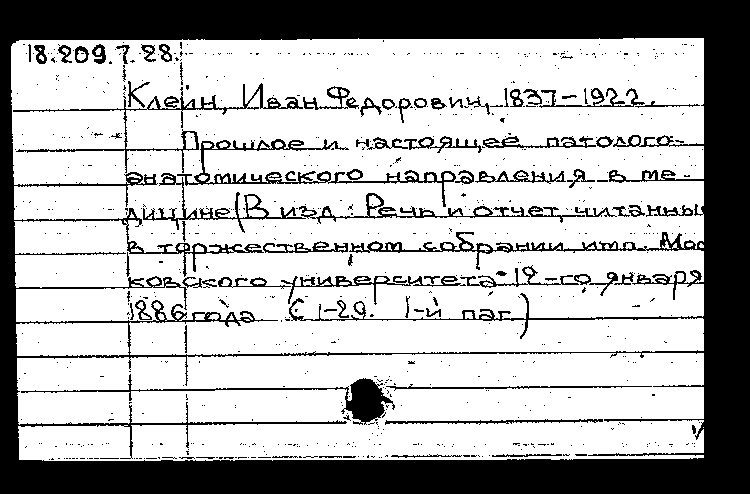 18.209.7.28.
Клейн, Иван Федорович, 1837-1922.
Прошлое и настоящее патолого-
анатомического направления в ме-
дицине (В изд.: Речь и отчет, читанны
в торжественном собрании имп. Мос
ковского университета 12-го января
1886 года С 1-29. 1-й паг.)